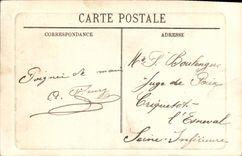 CARTE POSTALE
CORRESPONDANCE
ADRESSE
Poignée de main
Mr Boulenger
Juge de Paix
Criquetot-
l'Esneval
Seine-Inférieure